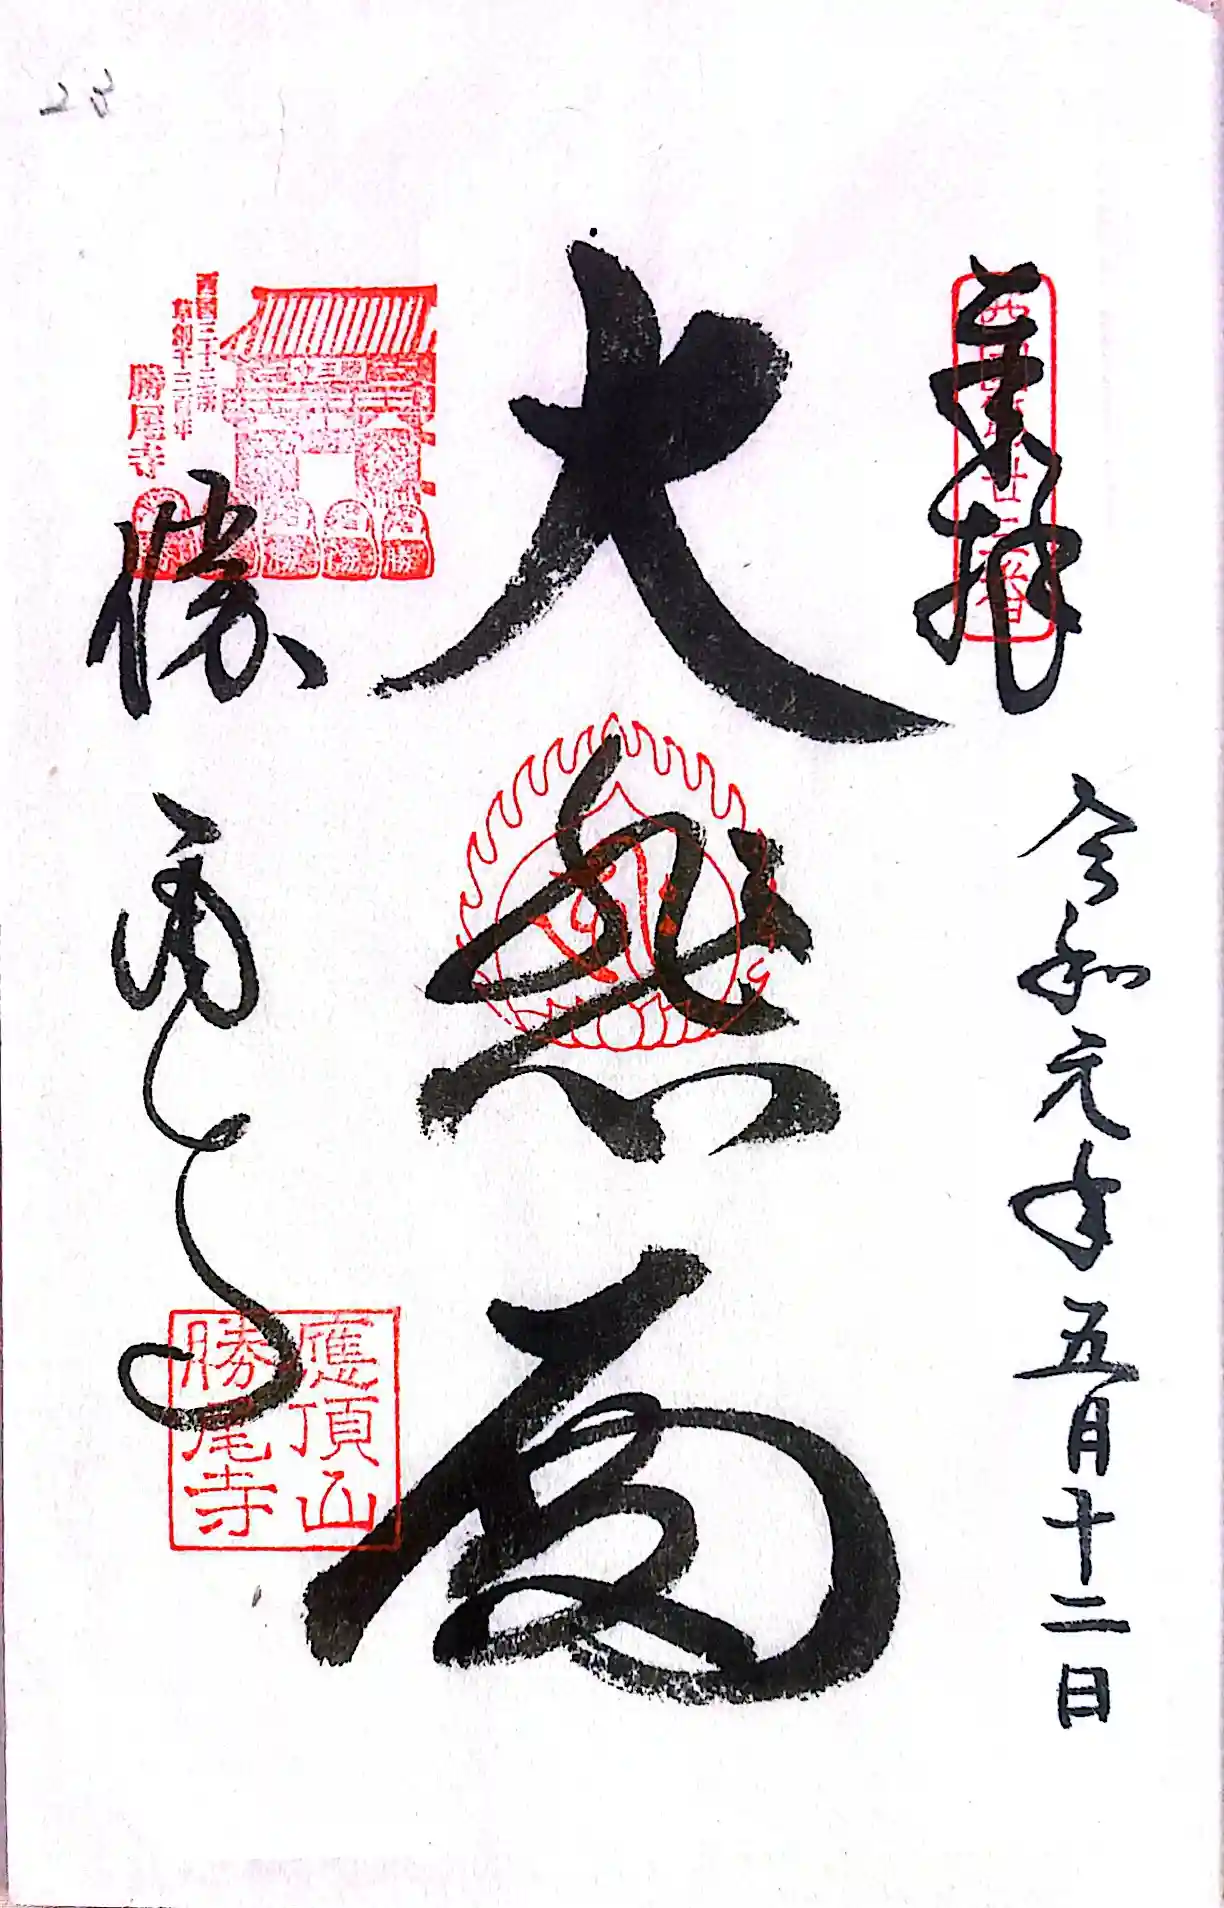 23
奉拝
西国第廿三番
令和元年五月十二日
大悲殿
西国三十三所
草創千三百年
勝尾寺
勝尾寺
應頂山
勝尾寺